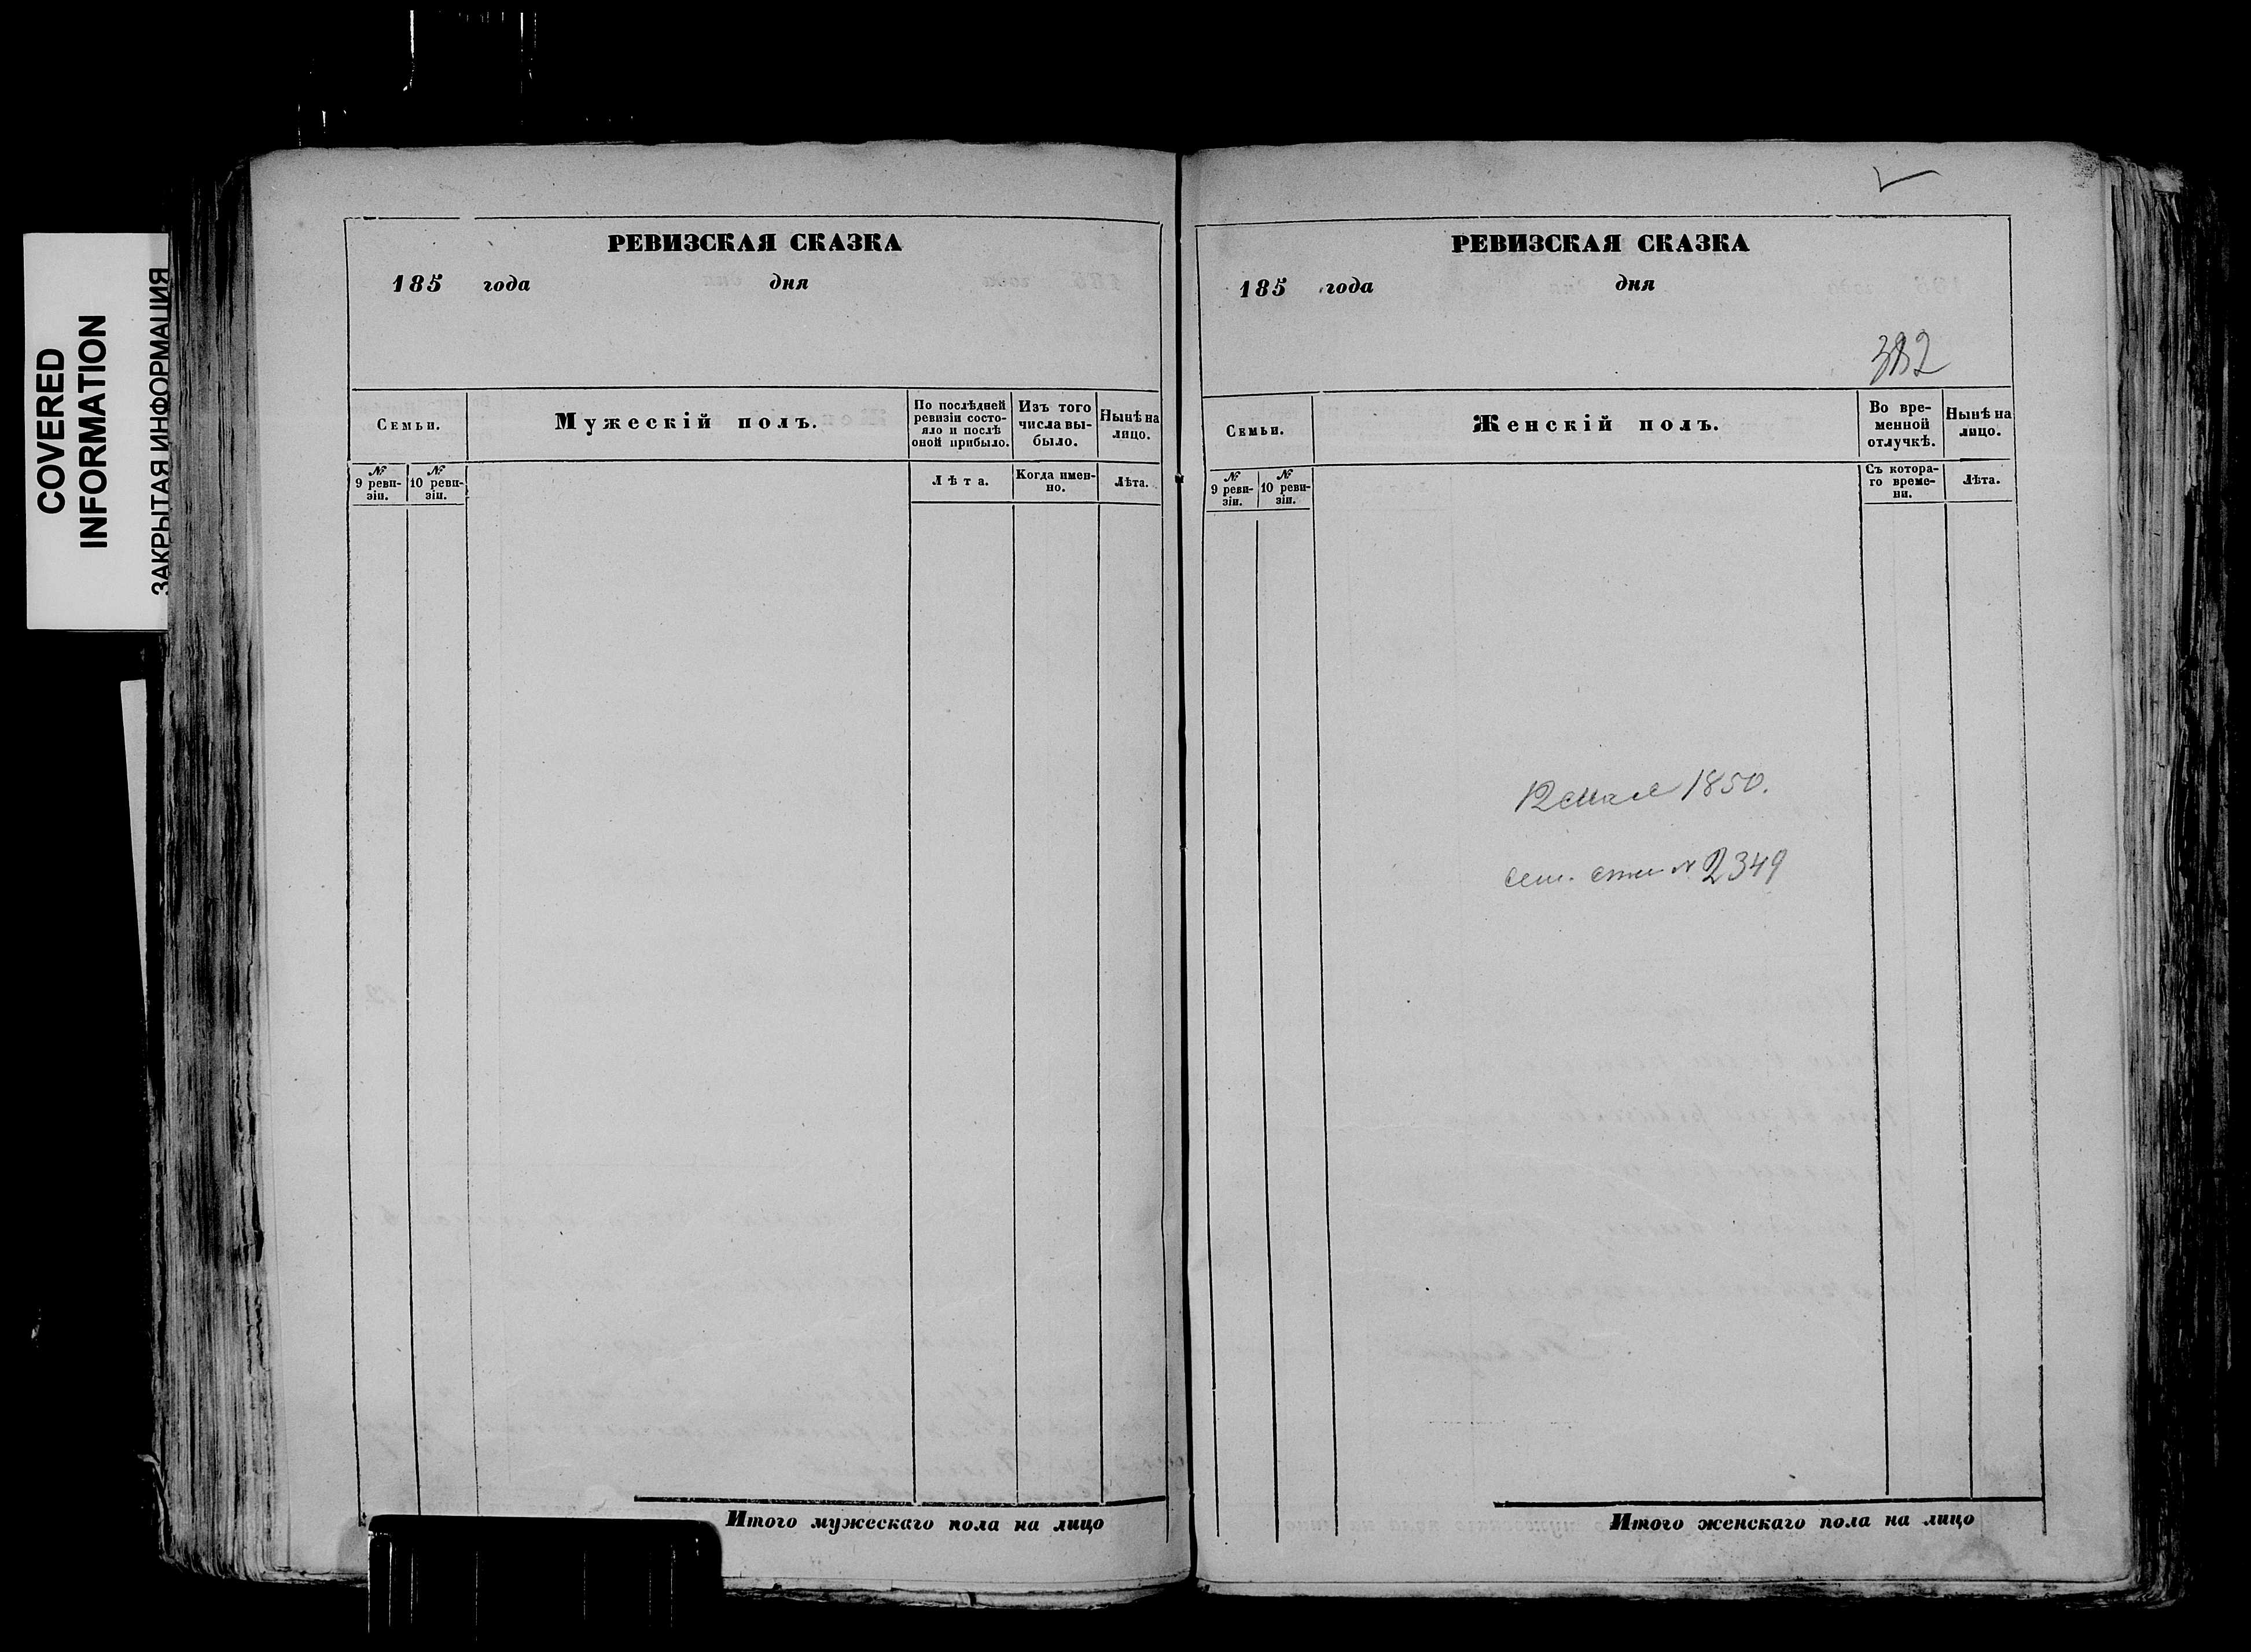 COVERED
INFORMATION
ЗАКРЫТАЯ ИНФОРМАЦИЯ
РЕВИЗСКАЯ СКАЗКА
185 года дня
Семьи.
Мужескій полъ.
По послѣдней
ревизіи состо-
яло и послѣ
оной прибыло.
Изъ того
числа вы-
было.
Нынѣ на
лицо.
№
9 реви-
зіи.
№
10 реви-
зіи.
Лѣта.
Когда имен-
но.
Лѣта.
Итого мужескаго пола на лицо
РЕВИЗСКАЯ СКАЗКА
185 года дня
382
Семьи.
Женскій полъ.
Во вре-
менной
отлучкѣ.
Нынѣ на
лицо.
№
9 реви-
зіи.
№
10 реви-
зіи.
Съ котора-
го време-
ни.
Лѣта.
1850.
№ 2349
Итого женскаго пола на лицо